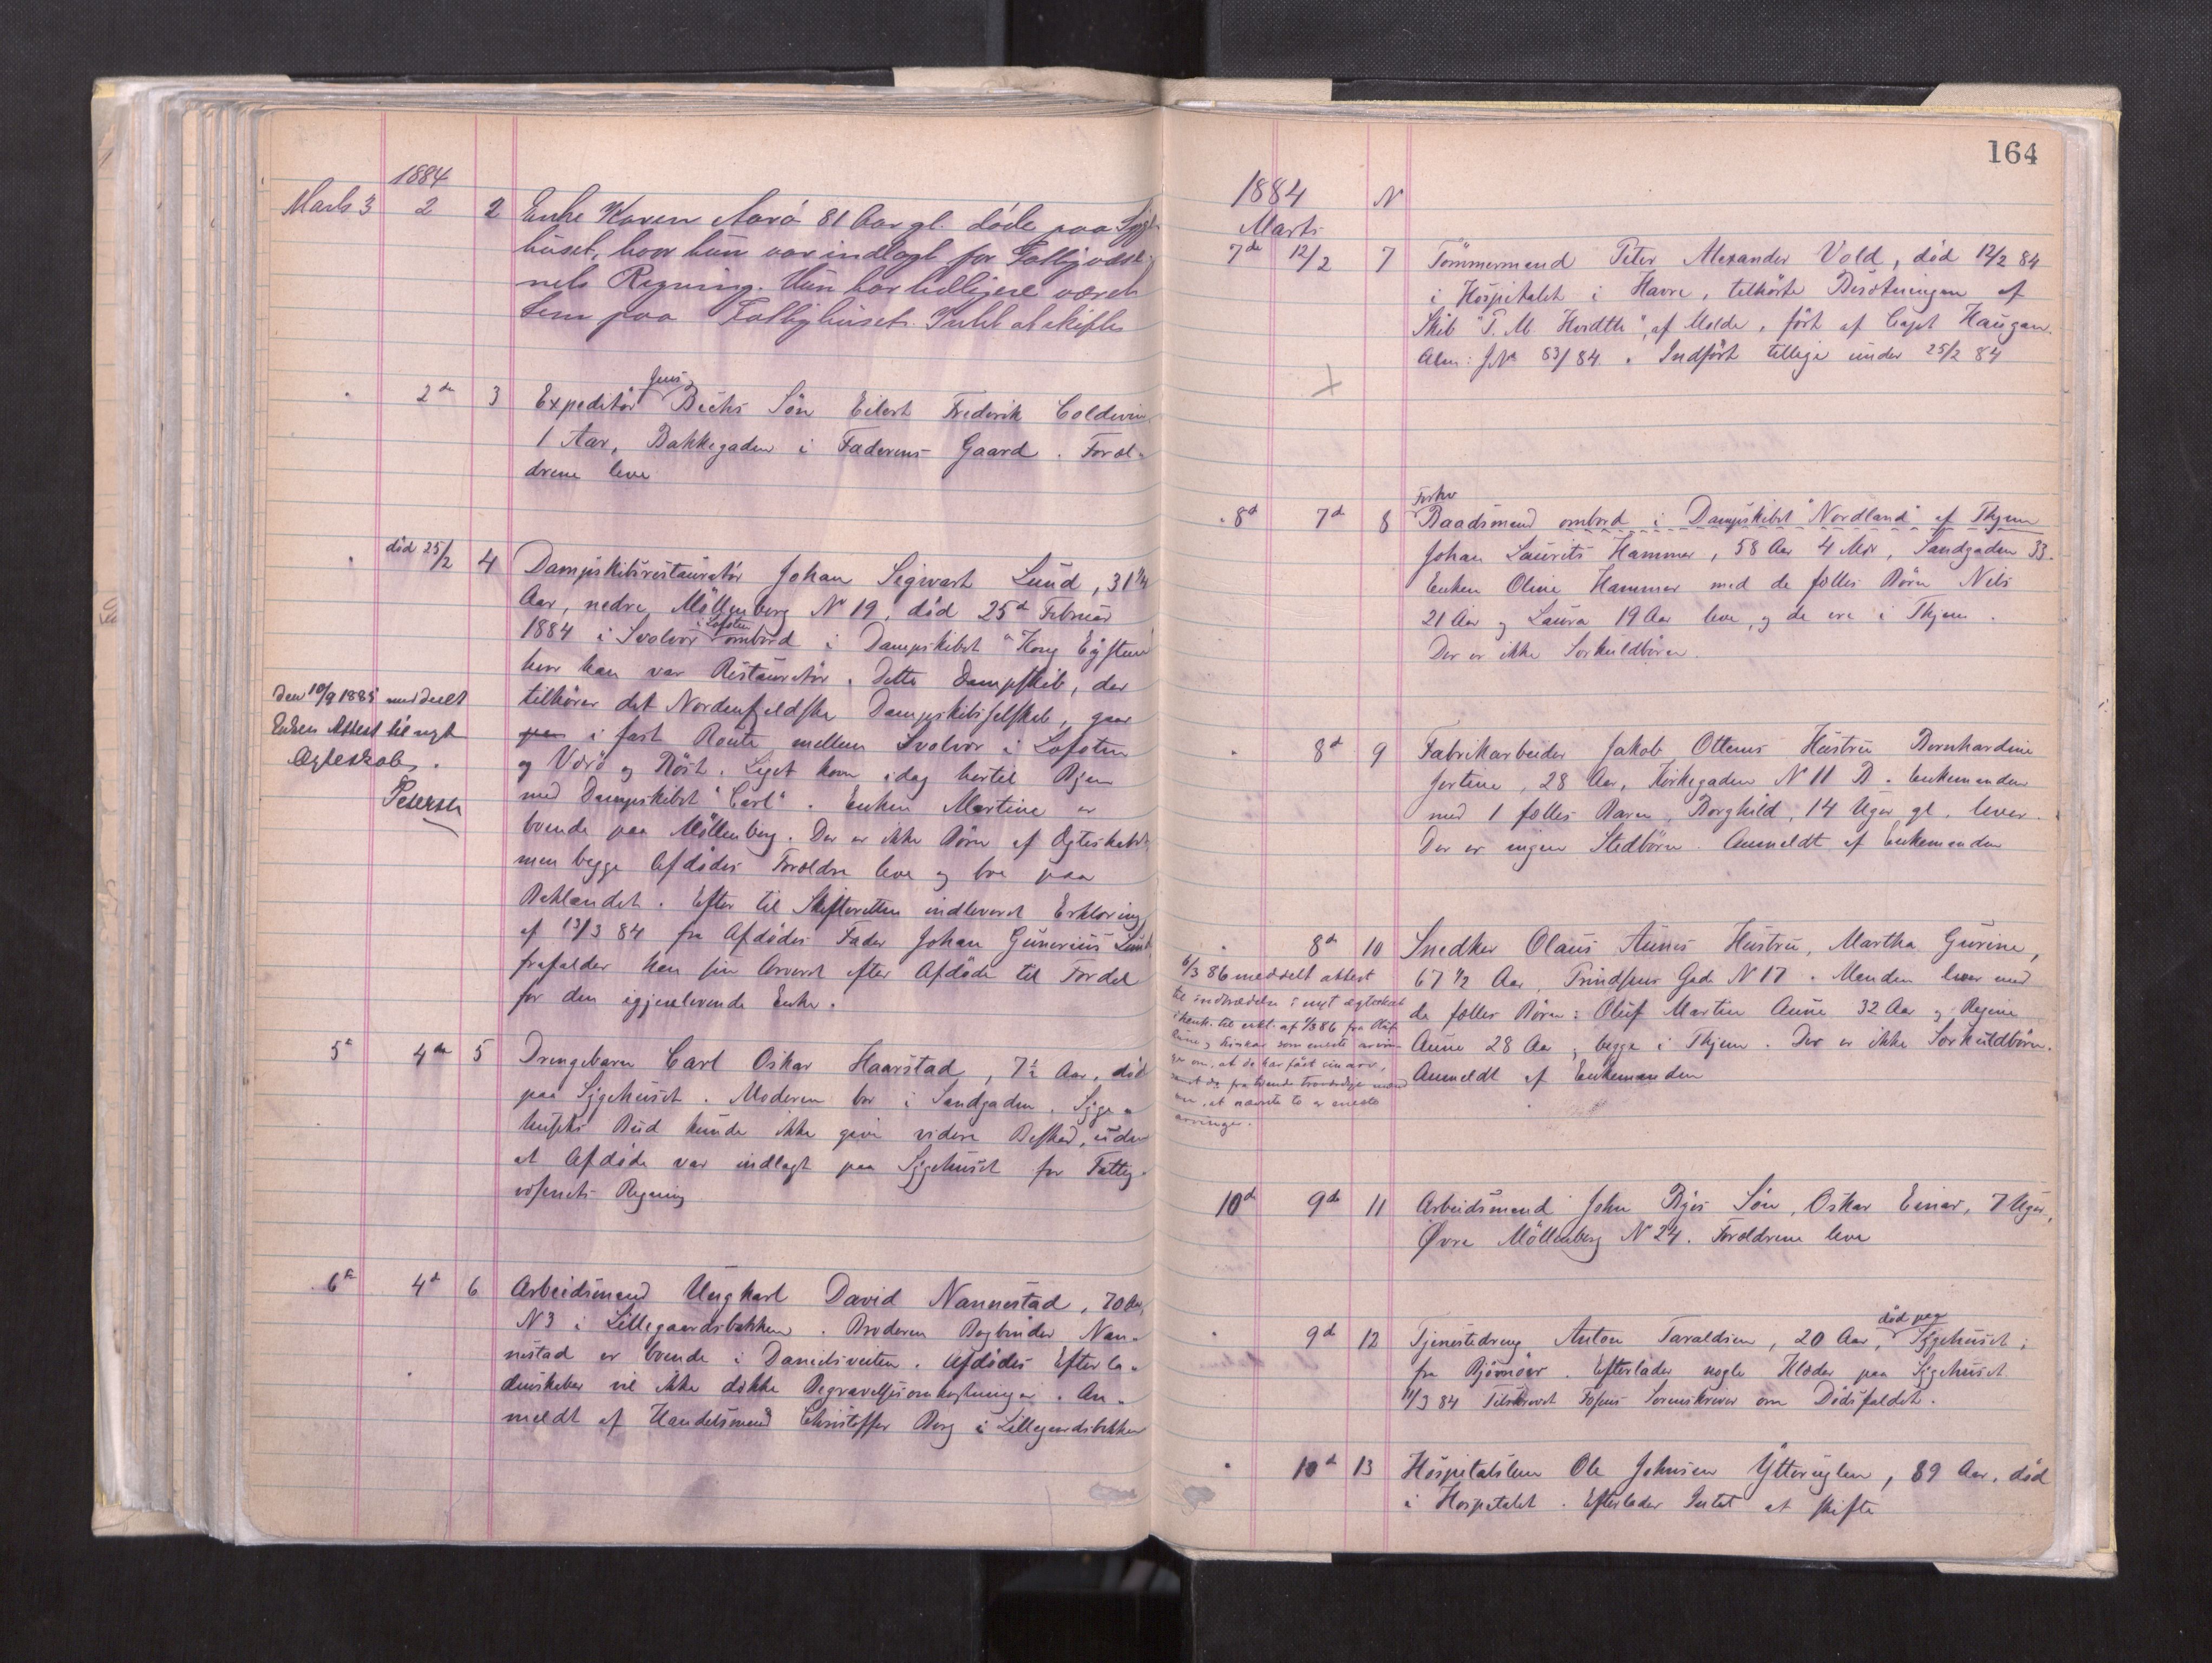 1884
Marts 3 2 2 Enke Karen Aarö 81 Aar gl. døde paa Syge-
huset, hvor hun var indlagt for Fattigvæse-
nets Regning. Hun har tidligere været
Lem paa Fattighuset. Intet at skifte
2den 3 Expeditör Jens Bechs Sön Eilert Frederik Coldevin
1 Aar, Bakkegaden i Faderens Gaard. Foræl-
drene leve
död 25/2 4 Dampskibsrestauratör Johan Sigvart Lund, 31 1/4
Aar, nedre Möllenberg No 19, död 25d Februar
1884 i Svolvær i Lofoten ombord i Dampskibet "Kong Eÿstein"
hvor han var Restauratör. Dette Dampskib, der
den 10/9 1885 meddeelt
tilhörer det Nordenfjeldske Dampskibsselskab, gaar
Enken Attest til nyt
i fast Route mellem Svolvær i Lofoten
Ægteskab.
og Værö og Röst. Liget kom idag hertil Byen
Petersen
med Dampskibet "Carl". Enken Martine er
boende paa Möllenberg. Der er ikke Börn af Ægteskabet
men begge Afdödes Forældre leve og bor paa
Baklandet. Efter til Skifteretten indleveret Erklæring
af 13/3 84 fra Afdödes Fader Johan Gunerius Lund
frafalder han sin Arveret efter Afdöde til Fordel
for den igjenlevende Enke.
5t 4de 5 Drengebarn Carl Oskar Haarstad, 7 1/2 Aar, död
paa Sygehuset. Moderen bor i Sandgaden. Syge-
husets Bud kunde ikke give videre Besked, uden
at Afdöde var indlagt paa Sygehuset for Fattig-
væsenets Regning
6te 4d 6 Arbeidsmand Ungkarl David Nannestad, 70 Aar,
N 3 i Lillegaardsbakken. Broderen Bogbinder Nan-
nestad er boende i Danielsveiten. Afdödes Efterla-
denskaber vil ikke dække Begravelsesomkostninger. An-
meldt af Handelsmand Christoffer Berg i Lillegaardsbakken
164
1884 N
Marts
7de 12/2 7 Tömmermand Peter Alexander Vold, död 12/2 84
i Hospitalet i Havre, tilhörte Besætningen af
Skib "P. M. " af Molde, fört af Capt Haugan.
Alm: JNo 53/84. Indfört tillige under 25/2 84
8d 7d 8 Forhv Baadsmand ombord i Dampskibet "Nordland" af Thjem
Johan Laurits Hammer, 58 Aar 4 Mdr, Sandgaden 33.
Enken Oline Hammer med de fælles Börn Nils
21 Aar og Laura 19 Aar leve, og de ere i Thjem.
Der er ikke Særkuldbörn.
8d 9 Fabrikarbeider Jakob Ottems Hustru Bernhardine
Jertine, 28 Aar, Kirkegaden N 11 B. Enkemanden
med 1 fælles Barn, Borghild, 14 Uger gl. lever.
Der er ingen Stedbörn. Anmeldt af Enkemanden
8d 10 Snedker Olaus Aunes Hustru, Martha Gurine,
67 1/2 Aar, Gade N 17. Manden lever med
de fælles Börn: Oluf Martin Aune 32 Aar og Regine
Aune 28 Aar, begge i Thjem. Der er ikke Særkuldbörn.
Anmeldt af Enkemanden
6/3 86 meddelt attest
til indtrædelse i nyt ægteskab
i henh. til erkl. af 1/3 86 fra Oluf
Aune, som eneste arvin-
ger om, at de har fået sin arv,
samt do fra tvende troværdige mænd
om, at nævnte to er eneste
arvinger.
10d 9de 11 Arbeidsmand John Byes Sön, Oskar Einar, 7 Uger,
Øvre Möllenberg N 24. Forældrene leve
9d 12 Tjenestedreng Anton Taraldsen, 20 Aar, död paa Sygehuset;
fra Björnör. Efterlader nogle Klæder paa Sygehuset
11/3 84 Tilskrevet Fosens Sorenskriver om Dödsfaldet.
10d 13 Hospitalslem Ole Johnsen Ÿtteruglen, 89 Aar, död
i Hospitalet. Efterlader Intet at skifte